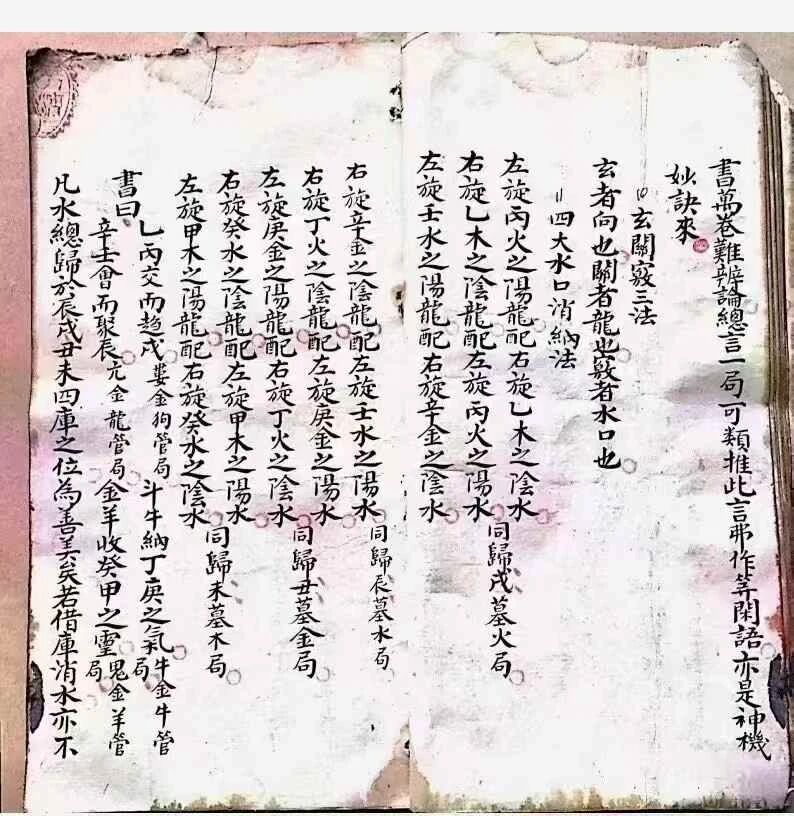 書萬卷難辨論總言一局可類推此言弗作等閑語亦是神機
妙訣來
玄關竅三法
玄者向也關者龍也竅者水口也
四大水口消納法
左旋丙火之陽龍配右旋乙木之陰水
右旋乙木之陰龍配左旋丙火之陽水
同歸戌墓火局
左旋壬水之陽龍配右旋辛金之陰水
右旋辛金之陰龍配左旋壬水之陽水
同歸辰墓水局
右旋丁火之陰龍配左旋庚金之陽水
左旋庚金之陽龍配右旋丁火之陰水
同歸丑墓金局
右旋癸水之陰龍配左旋甲木之陽水
左旋甲木之陽龍配右旋癸水之陰水
同歸未墓木局
書曰
乙丙交而趋戌婁金狗管局斗牛納丁庚之氣牛金牛管局
辛壬會而聚辰亢金龍管局金羊收癸甲之靈鬼金羊管局
凡水總歸於辰戌丑未四庫之位為善美矣若借庫消水亦不